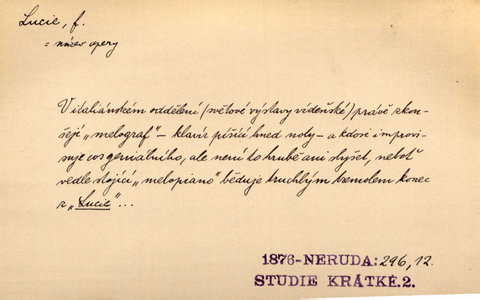 Lucie, f.
= název opery
V italiánském oddělení (světové výstavy vídeňské) právě zkou-
šejí „melograf" – klavír píšící hned noty – a kdosi improvi-
suje cos geniálního, ale není to hrubě ani slyšet, neboť
vedle stojící „melopiano" běduje truchlým tremolem konec
z „Lucie"...
1876-NERUDA: 296, 12.
STUDIE KRÁTKÉ.2.